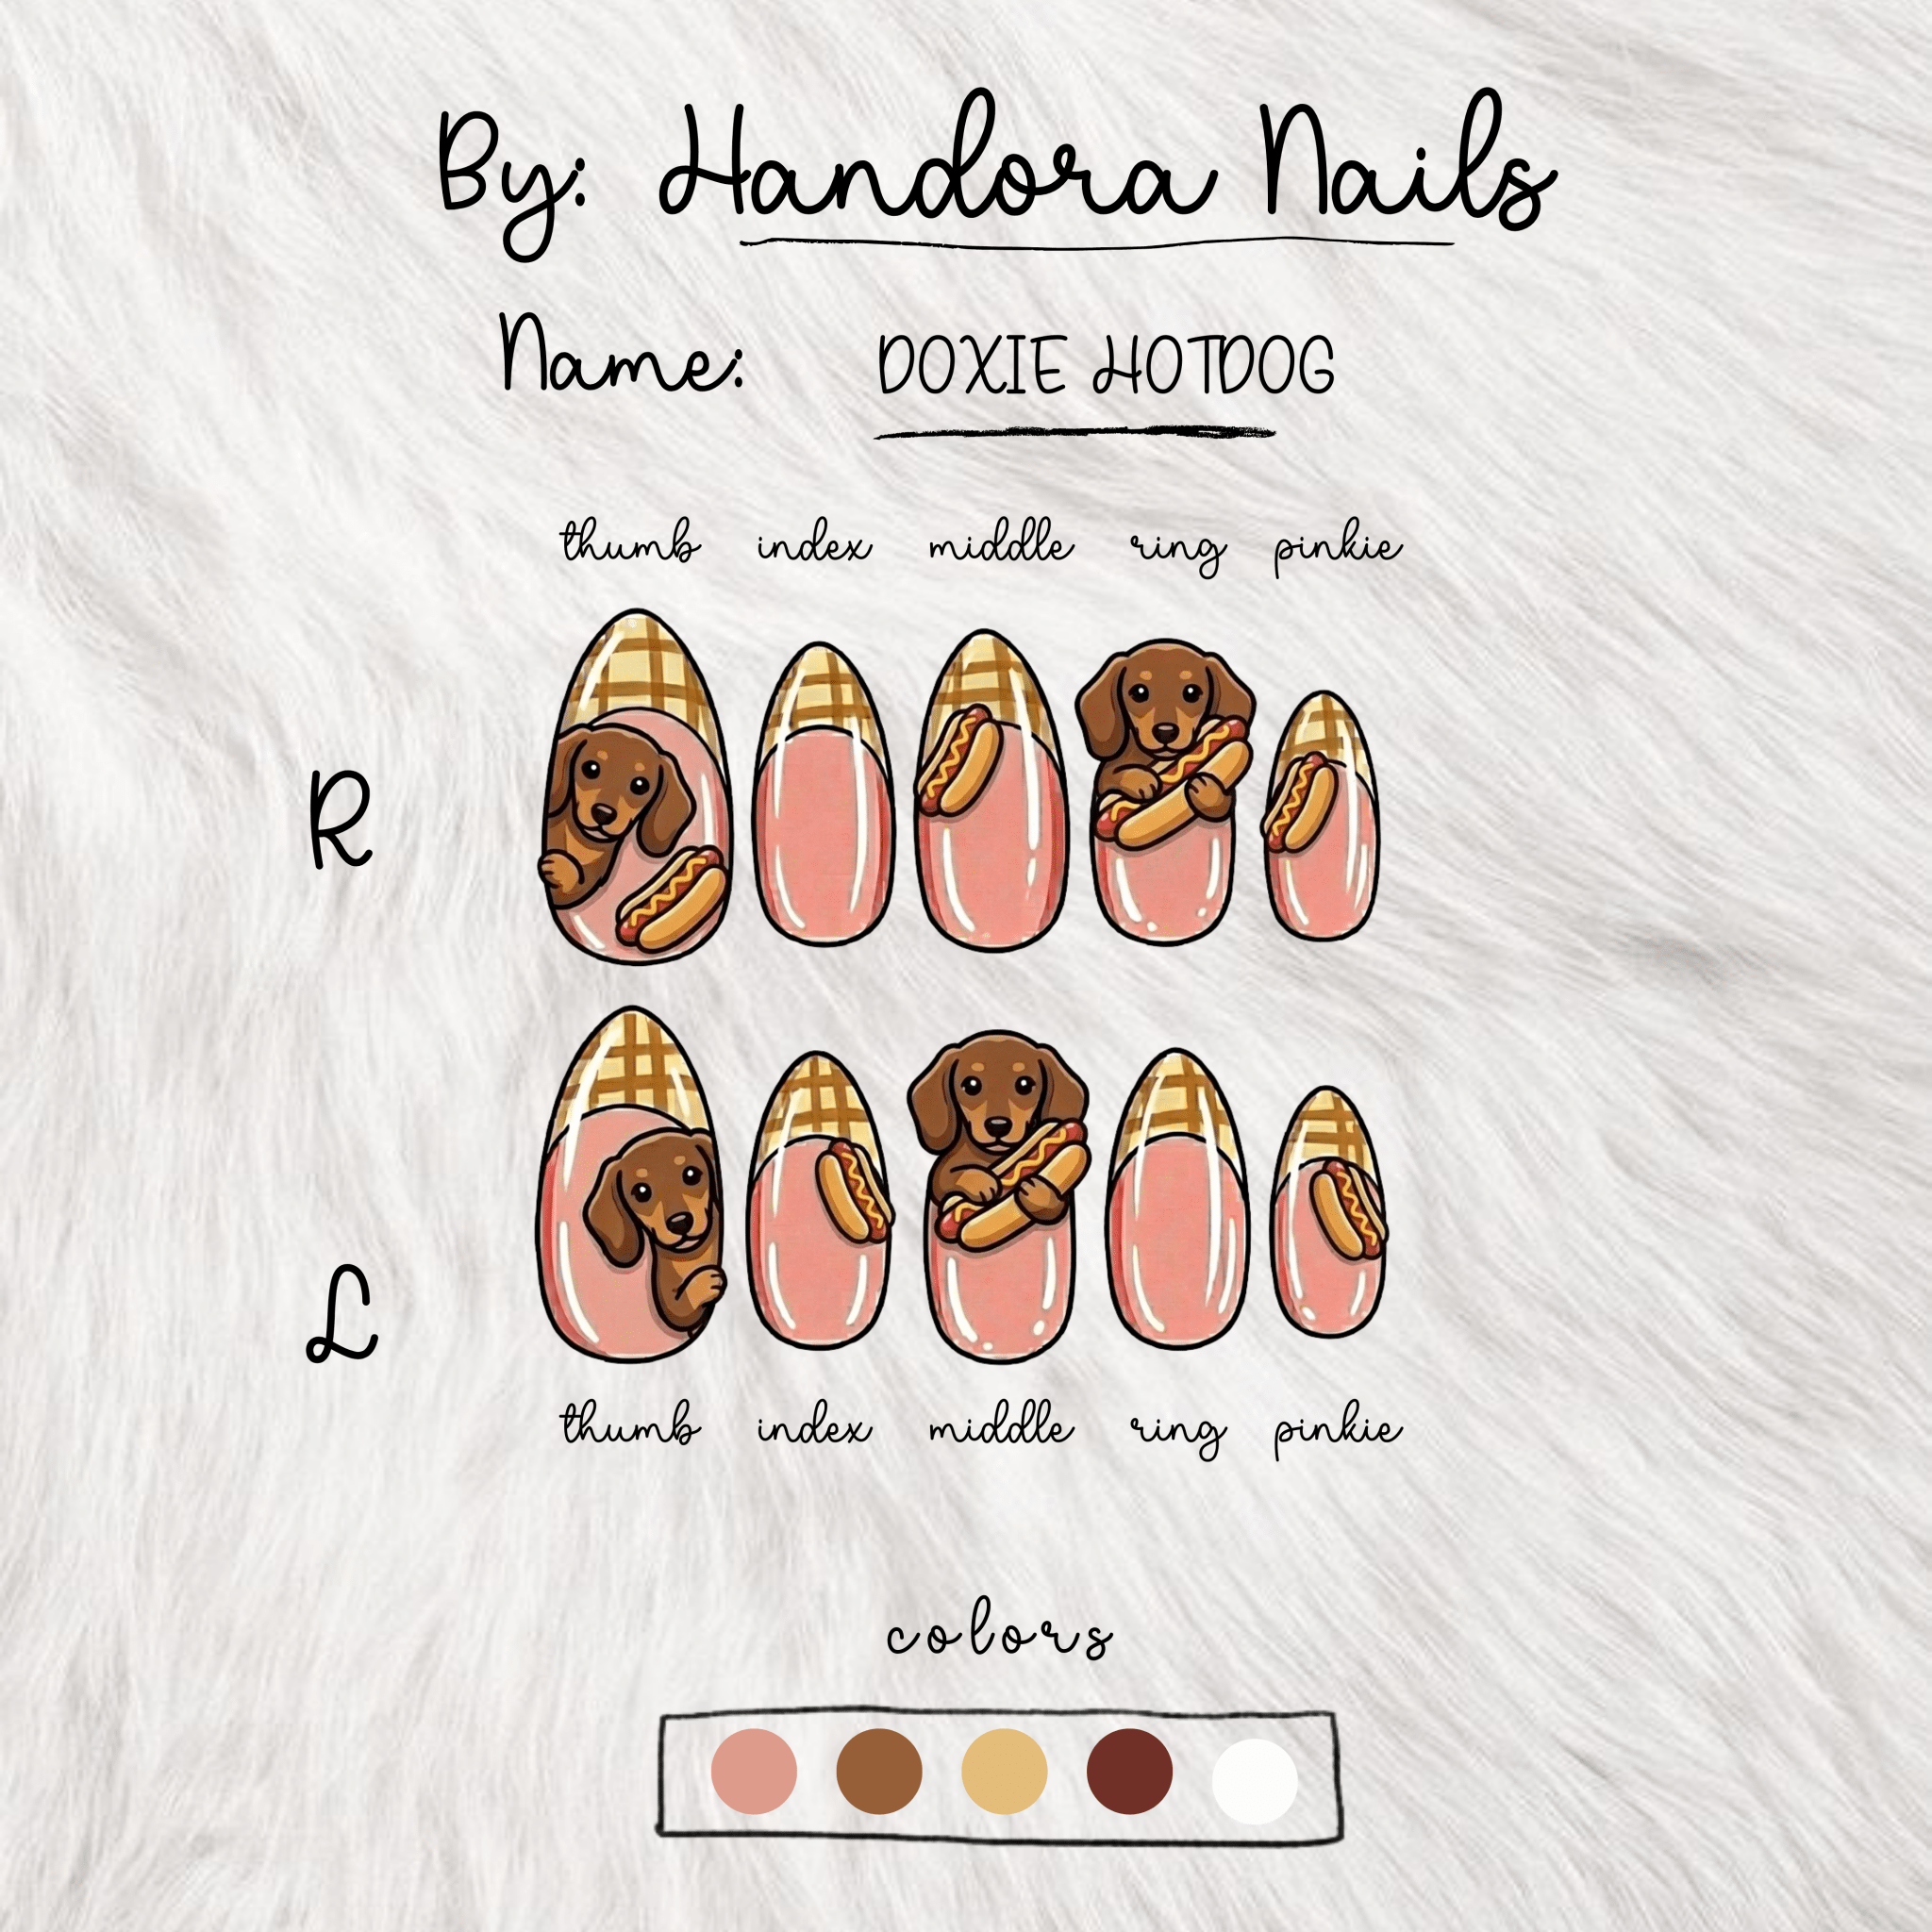 By: Handora Nails
Name: DOXIE HOTDOG
thumb index middle ring pinkie
R
L
thumb index middle ring pinkie
colors